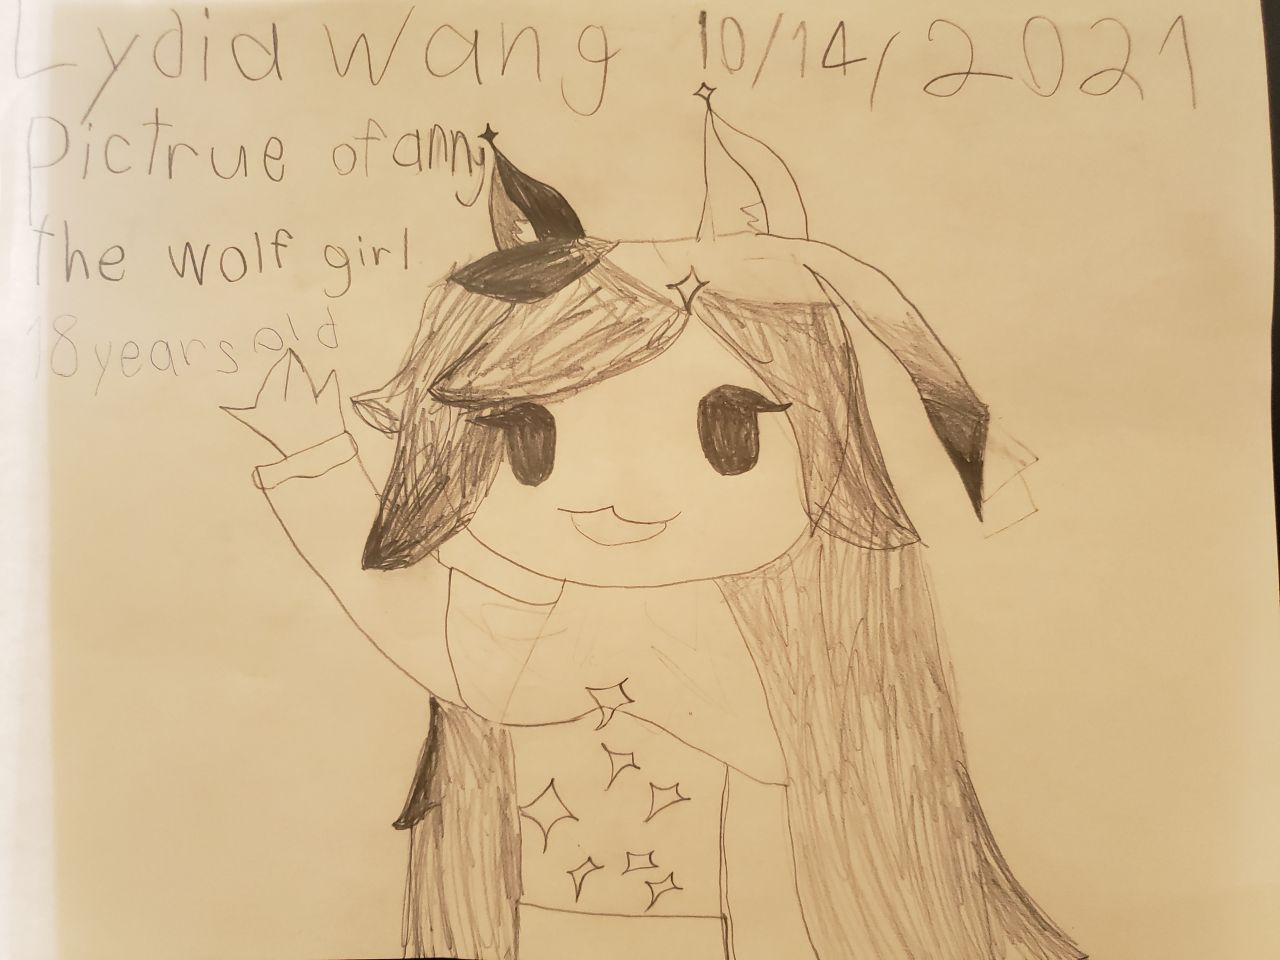 Lydia Wang 10/14/2021
Pictrue of anny
the wolf girl
18 years old